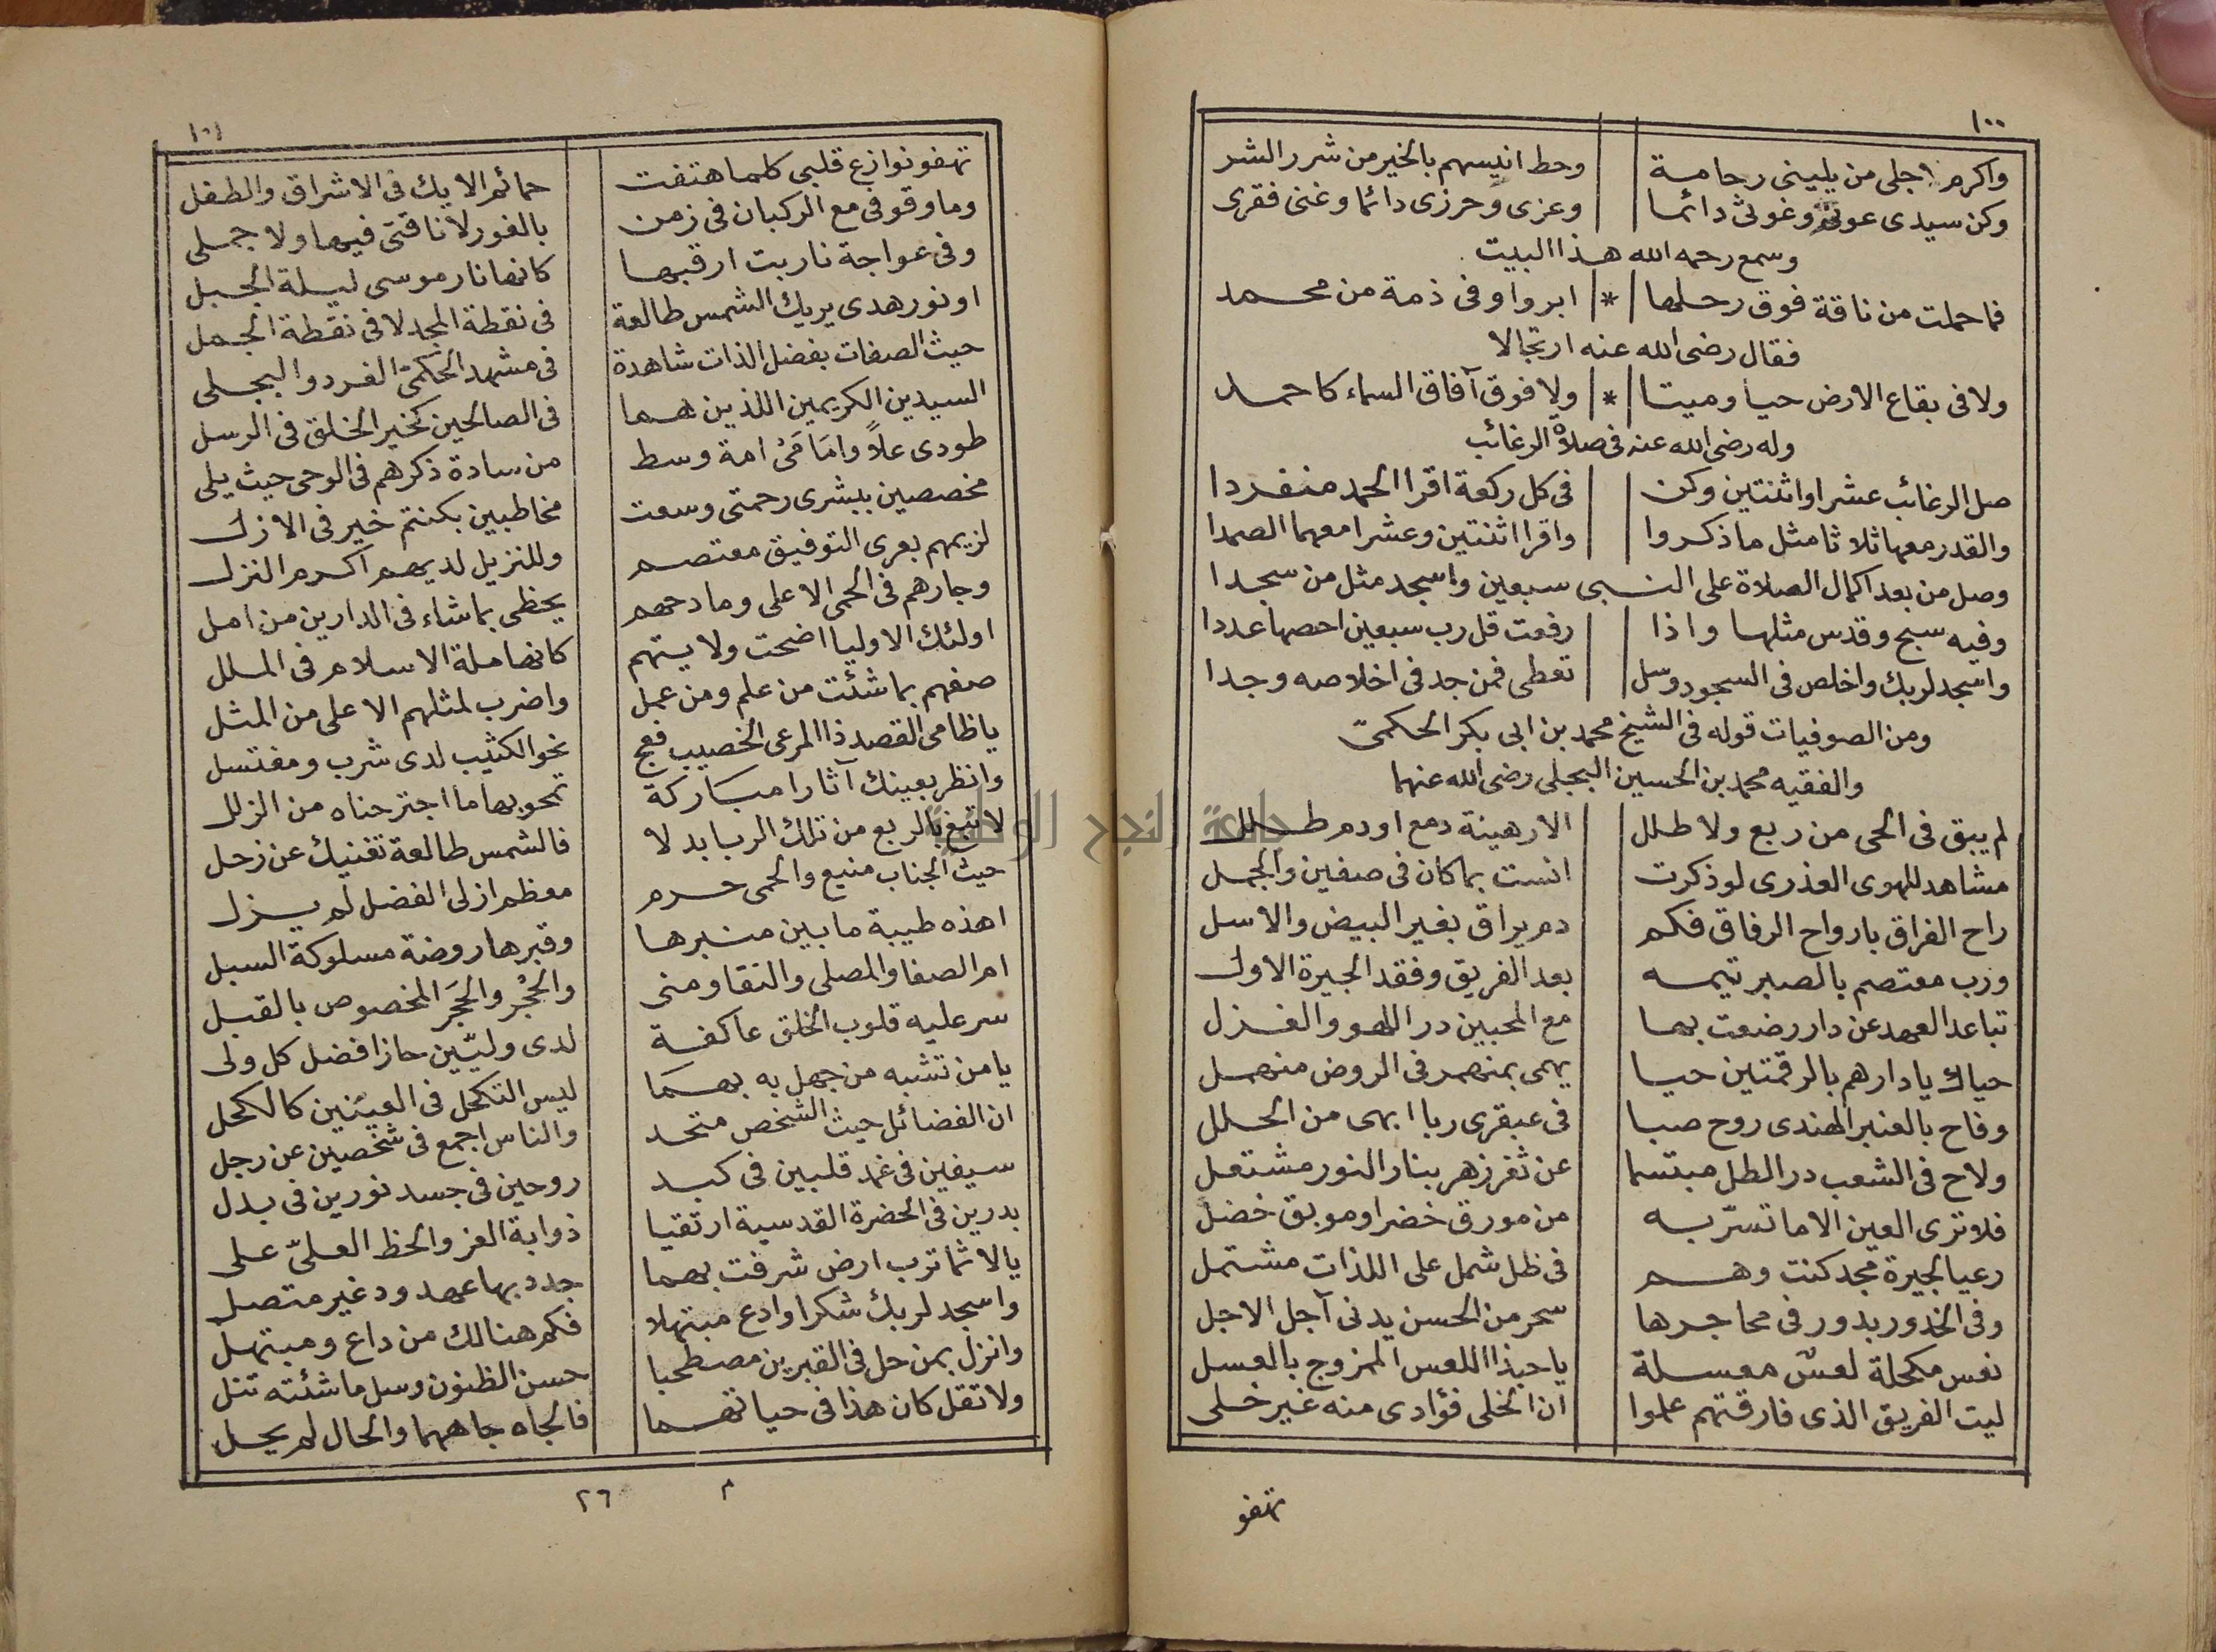 ١٠٠
واكرم اجلى من يلينى رجامة وحط انيسهم بالخير من شرر الشر
وكن سيدى عونى وغوثى دائما وعزى وحرزى دائما وغنى فقرى
وسمع رحمه الله هذا البيت
فما حملت من ناقة فوق رحلها * ابر واوفى ذمة من محمد
فقال رضى الله عنه ارتجالا
ولا فى بقاع الارض حيا وميتا * ولا فوق آفاق السماء كاحمد
وله رضى الله عنه فى صلاة الرغائب
صل الرغائب عشرا واثنتين وكن فى كل ركعة اقرا الحمد منفردا
والقدر معها ثلاثا مثل ما ذكروا واقرا اثنتين وعشرا معهما الصمدا
وصل من بعد اكمال الصلاة على النبى سبعين واسجد مثل من سجدا
وفيه سبح وقدس مثلها واذا رفعت قل رب سبعين احصها عددا
واسجد لربك واخلص فى السجود وسل تعطى فمن جد فى اخلاصه وجدا
ومن الصوفيات قوله فى الشيخ محمد بن ابى بكر الحكمىّ
والفقيه محمد بن الحسين البجلى رضى الله عنهما
لم يبق فى الحى من ربع ولا طلل الا رهينة دمع او دم طلل
مشاهد للهوى العذرى لو ذكرت انست بما كان فى صفين والجمل
راح الفراق بارواح الرفاق فكم دم يراق بغير البيض والاسل
ورب معتصم بالصبر تيمه بعد الفريق وفقد الجيرة الاول
تباعد العهد عن دار رضعت بها مع المحبين در اللهو والغزل
حياك يا دارهم بالرقمتين حيا يهمى بمنهمر فى الروض منهمل
وفاح بالعنبر الهندى روح صبا فى عبقرى ربا ابهى من الحلل
ولاح فى الشعب در الطل مبتسما عن ثغر زهر بنار النور مشتعل
فلا ترى العين الا ما تسرّ به من مورق خضر او مونق خضل
رعيا لجيرة مجد كنت وهم فى ظل شمل على اللذات مشتمل
وفى الخدور بدور فى محاجرها سحر من الحسن يدنى آجل الاجل
نعس مكحلة لعس معسلة يا حبذا اللعس الممزوج بالعسل
ليت الفريق الذى فارقتهم علموا ان الخلى فؤادى منه غير خلى
تهفو
١٠١
تهفو نوازع قلبى كلما هتفت حمائم الايك فى الاشراق والطفل
وما وقوفى مع الركبان فى زمن بالغور لا ناقتى فيها ولا جملى
وفى عواجة نار بت ارقبها كانها نار موسى ليلة الجبل
او نور هدى يريك الشمس طالعة فى نقطة المجد لا فى نقطة الجمل
حيث الصفات بفضل الذات شاهدة فى مشهد الحكمىّ الفرد والبجلى
السيدين الكريمين اللذين هما فى الصالحين كخير الخلق فى الرسل
طودى علاً وامامَىْ امة وسط من سادة ذكرهم فى الوحى حيث يلى
مخصصين ببشرى رحمتى وسعت مخاطبين بكنتم خير فى الازل
لزيمهم بعرى التوفيق معتصم وللنزيل لديهم اكرم النزل
وجارهم فى الحمى الاعلى ومادحهم يحظى بما شاء فى الدارين من امل
اولئك الاوليا اضحت ولايتهم كانها ملة الاسلام فى الملل
صفهم بما شئت من علم ومن عمل واضرب لمثلهم الاعلى من المثل
يا ظامى القصد ذا المرعى الخصيب فعج نحو الكثيب لدى شرب ومغتسل
وانظر بعينك آثارا مباركة تمحو بها ما اجترحناه من الزلل
لا تبغ بالربع من تلك الربا بدلا فالشمس طالعة تغنيك عن زحل
حيث الجناب منيع والحمى حرم معظم ازلى الفضل لم يزل
اهذه طيبة ما بين منبرها وقبرها روضة مسلوكة السبل
ام الصفا والمصلى والنقا ومنى والحِجْر والحَجَر المخصوص بالقبل
سر عليه قلوب الخلق عاكفة لدى وليّين حازا فضل كل ولى
يا من تشبه من جهل به بهما ليس التكحل فى العينين كالكحل
ان الفضائل حيث الشخص متحد والناس اجمع فى شخصين عن رجل
سيفين فى غمد قلبين فى كبد روحين فى جسد نورين فى بدل
بدرين فى الحضرة القدسية ارتقيا ذوابة العز والحظ العلىّ على
يا لاثما ترب ارض شرفت بهما جدد بها عهد ود غير متصل
واسجد لربك شكرا وادع مبتهلا فكم هنالك من داع ومبتهل
وانزل بمن حل فى القبرين مصطحبا حسن الظنون وسل ما شئته تنل
ولا تقل كان هذا فى حياتهما فالجاه جاههما والحال لم يحل
م ٢٦
جامعة النجاح الوطنية